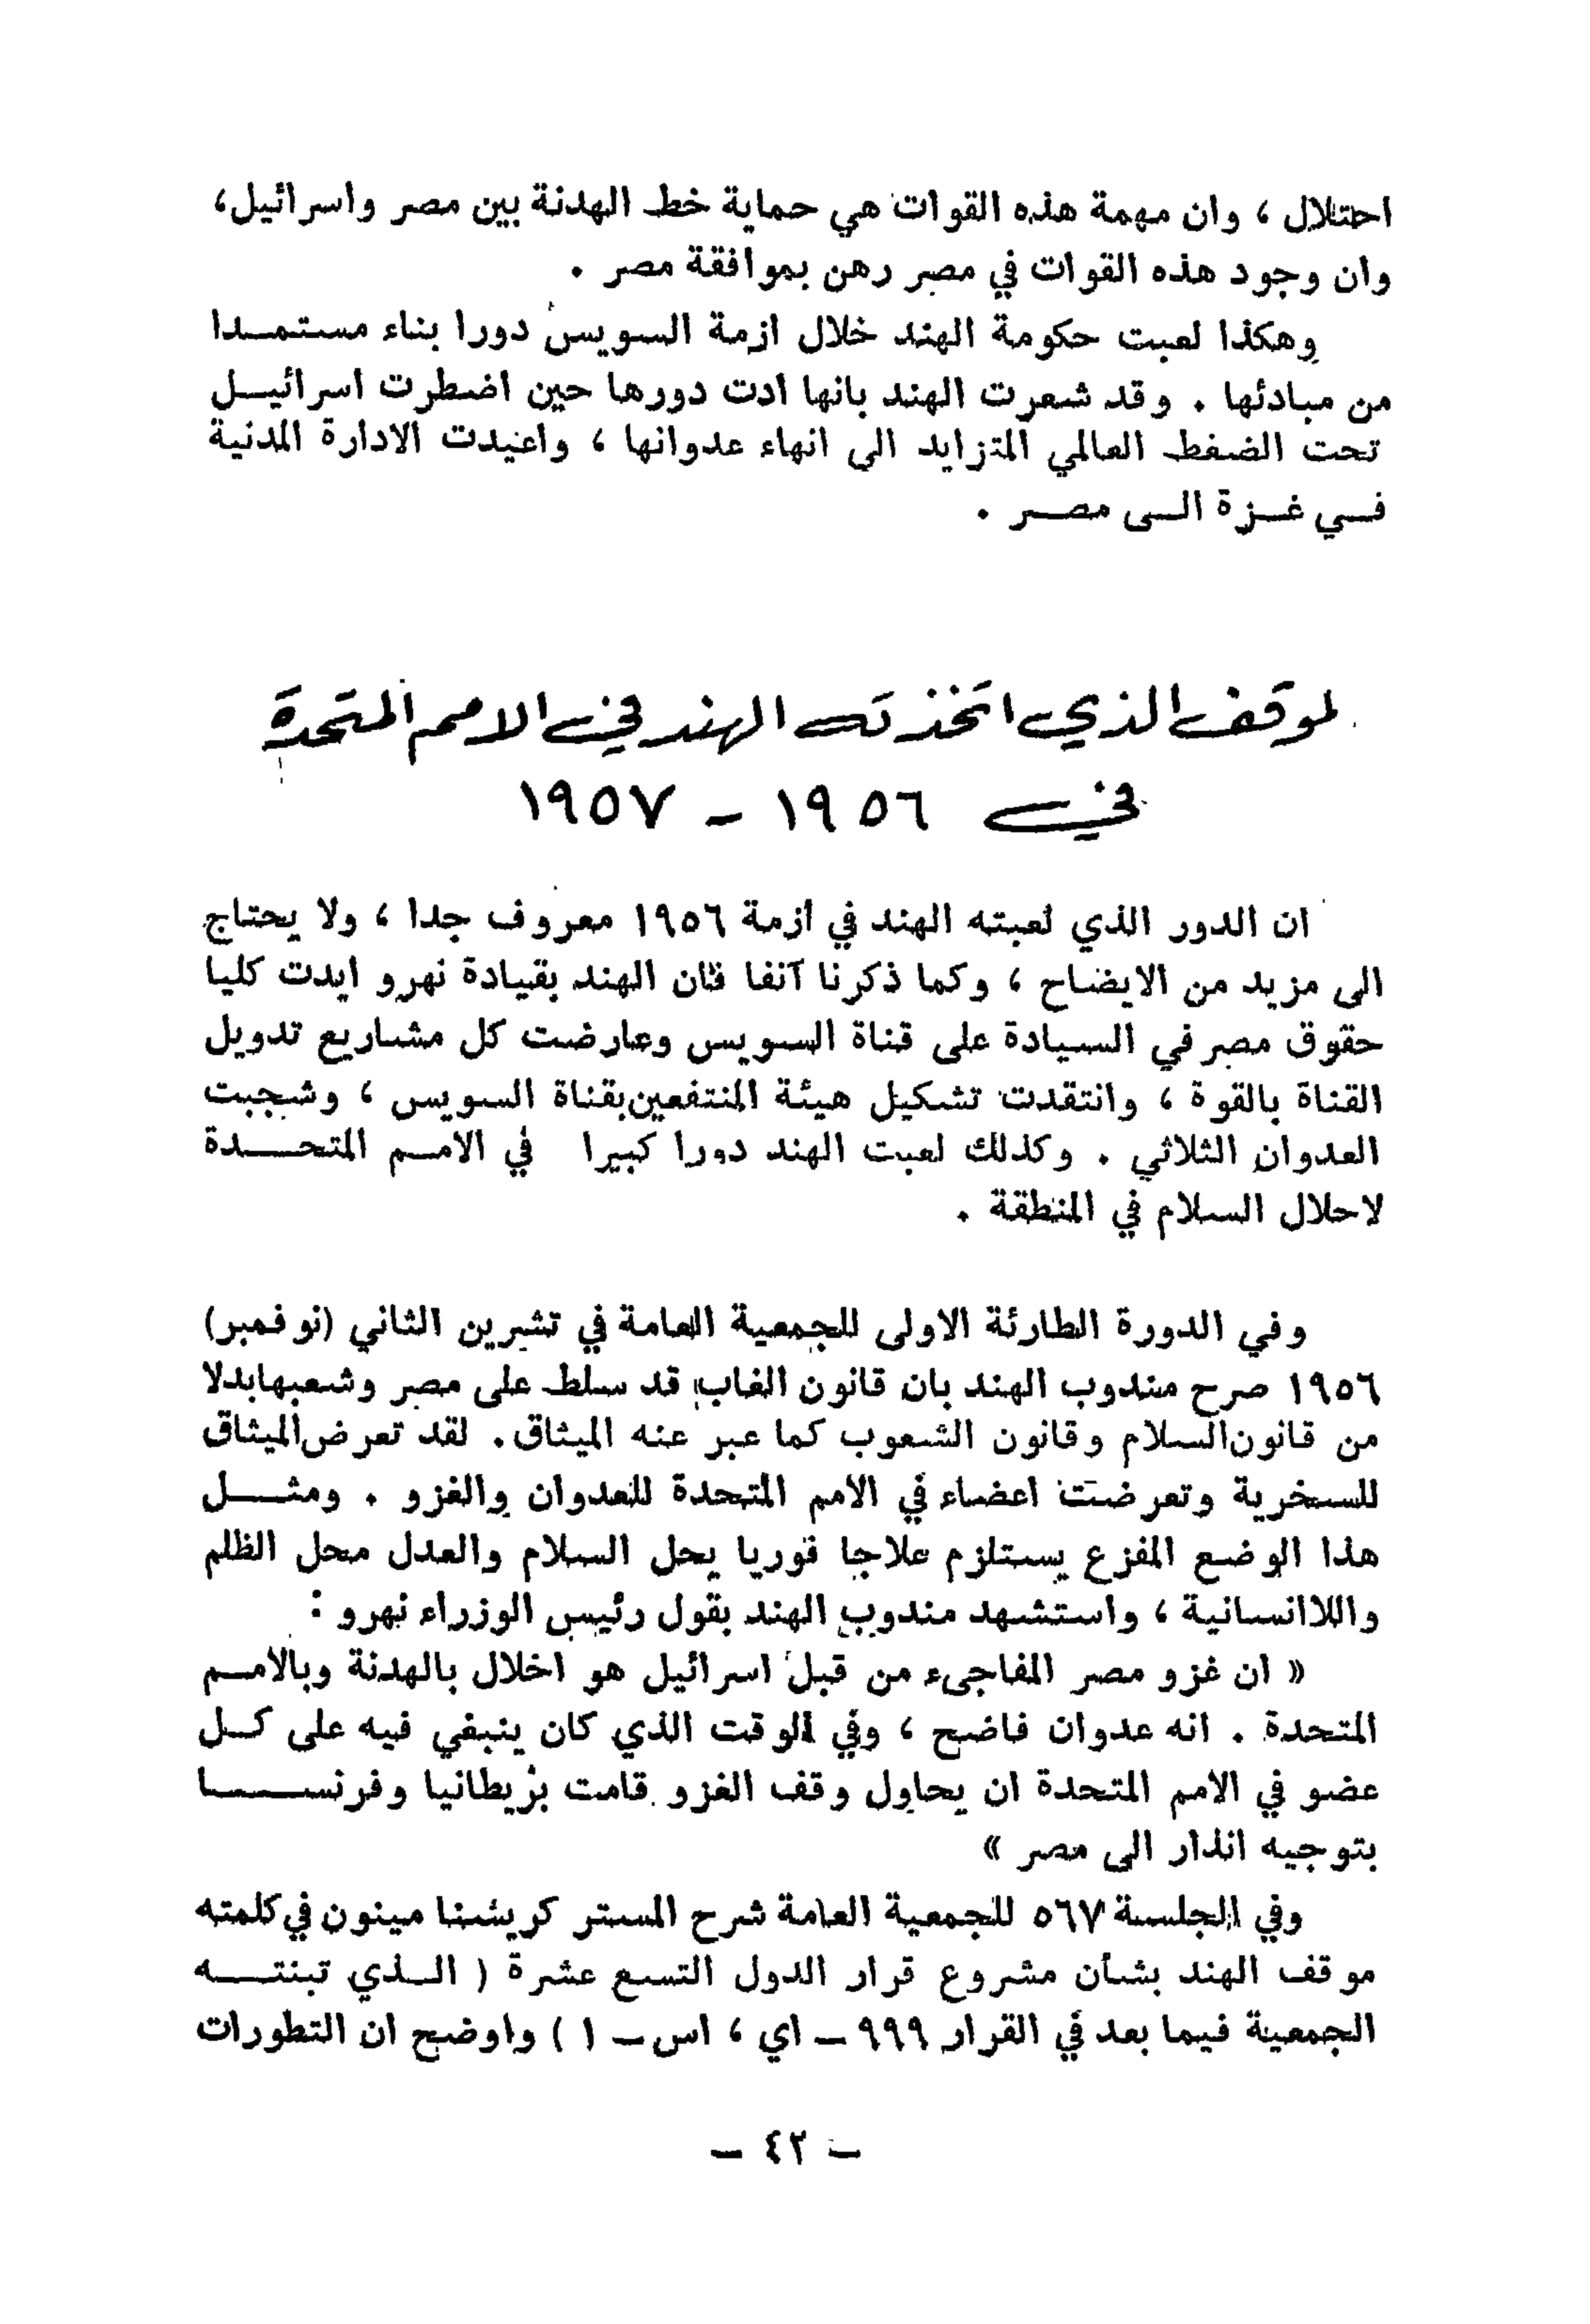 احتلال ، وان مهمة هذه القوات هي حماية خط الهدنة بين مصر واسرائيل،
وان وجود هذه القوات في مصر رهن بموافقة مصر .
وهكذا لعبت حكومة الهند خلال ازمة السويس دورا بناء مستمدا
من مبادئها . وقد شعرت الهند بانها ادت دورها حين اضطرت اسرائيل
تحت الضغط العالمي المتزايد الى انهاء عدوانها ، واعيدت الادارة المدنية
في غزة الى مصر .
لموقف الذي اتخذته الهند في الامم المتحدة
في ١٩٥٦ - ١٩٥٧
ان الدور الذي لعبته الهند في ازمة ١٩٥٦ معروف جدا ، ولا يحتاج
الى مزيد من الايضاح ، وكما ذكرنا آنفا فان الهند بقيادة نهرو ايدت كليا
حقوق مصر في السيادة على قناة السويس وعارضت كل مشاريع تدويل
القناة بالقوة ، وانتقدت تشكيل هيئة المنتفعين بقناة السويس ، وشجبت
العدوان الثلاثي . وكذلك لعبت الهند دورا كبيرا في الامم المتحدة
لاحلال السلام في المنطقة .
وفي الدورة الطارئة الاولى للجمعية العامة في تشرين الثاني (نوفمبر)
١٩٥٦ صرح مندوب الهند بان قانون الغاب قد سلط على مصر وشعبها بدلا
من قانون السلام وقانون الشعوب كما عبر عنه الميثاق. لقد تعرض الميثاق
للسخرية وتعرضت اعضاء في الامم المتحدة للعدوان والغزو . ومثل
هذا الوضع المفزع يستلزم علاجا فوريا يحل السلام والعدل محل الظلم
واللاانسانية ، واستشهد مندوب الهند بقول رئيس الوزراء نهرو :
« ان غزو مصر المفاجىء من قبل اسرائيل هو اخلال بالهدنة وبالامم
المتحدة . انه عدوان فاضح ، وفي الوقت الذي كان ينبغي فيه على كل
عضو في الامم المتحدة ان يحاول وقف الغزو قامت بريطانيا وفرنسا
بتوجيه انذار الى مصر »
وفي الجلسة ٥٦٧ للجمعية العامة شرح المستر كريشنا مينون في كلمته
موقف الهند بشأن مشروع قرار الدول التسع عشرة ( الذي تبنته
الجمعية فيما بعد في القرار ٩٩٩ - اي ، اس - ١ ) واوضح ان التطورات
- ٤٢ -